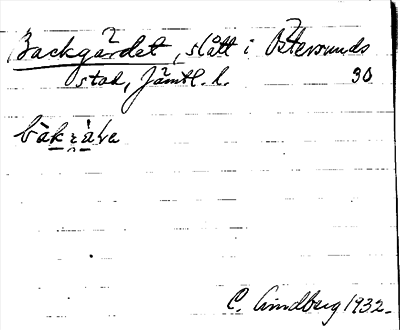 Backgärdet, slått i Östersunds
stad, Jämtl. l. 30
C. Lindberg 1932.